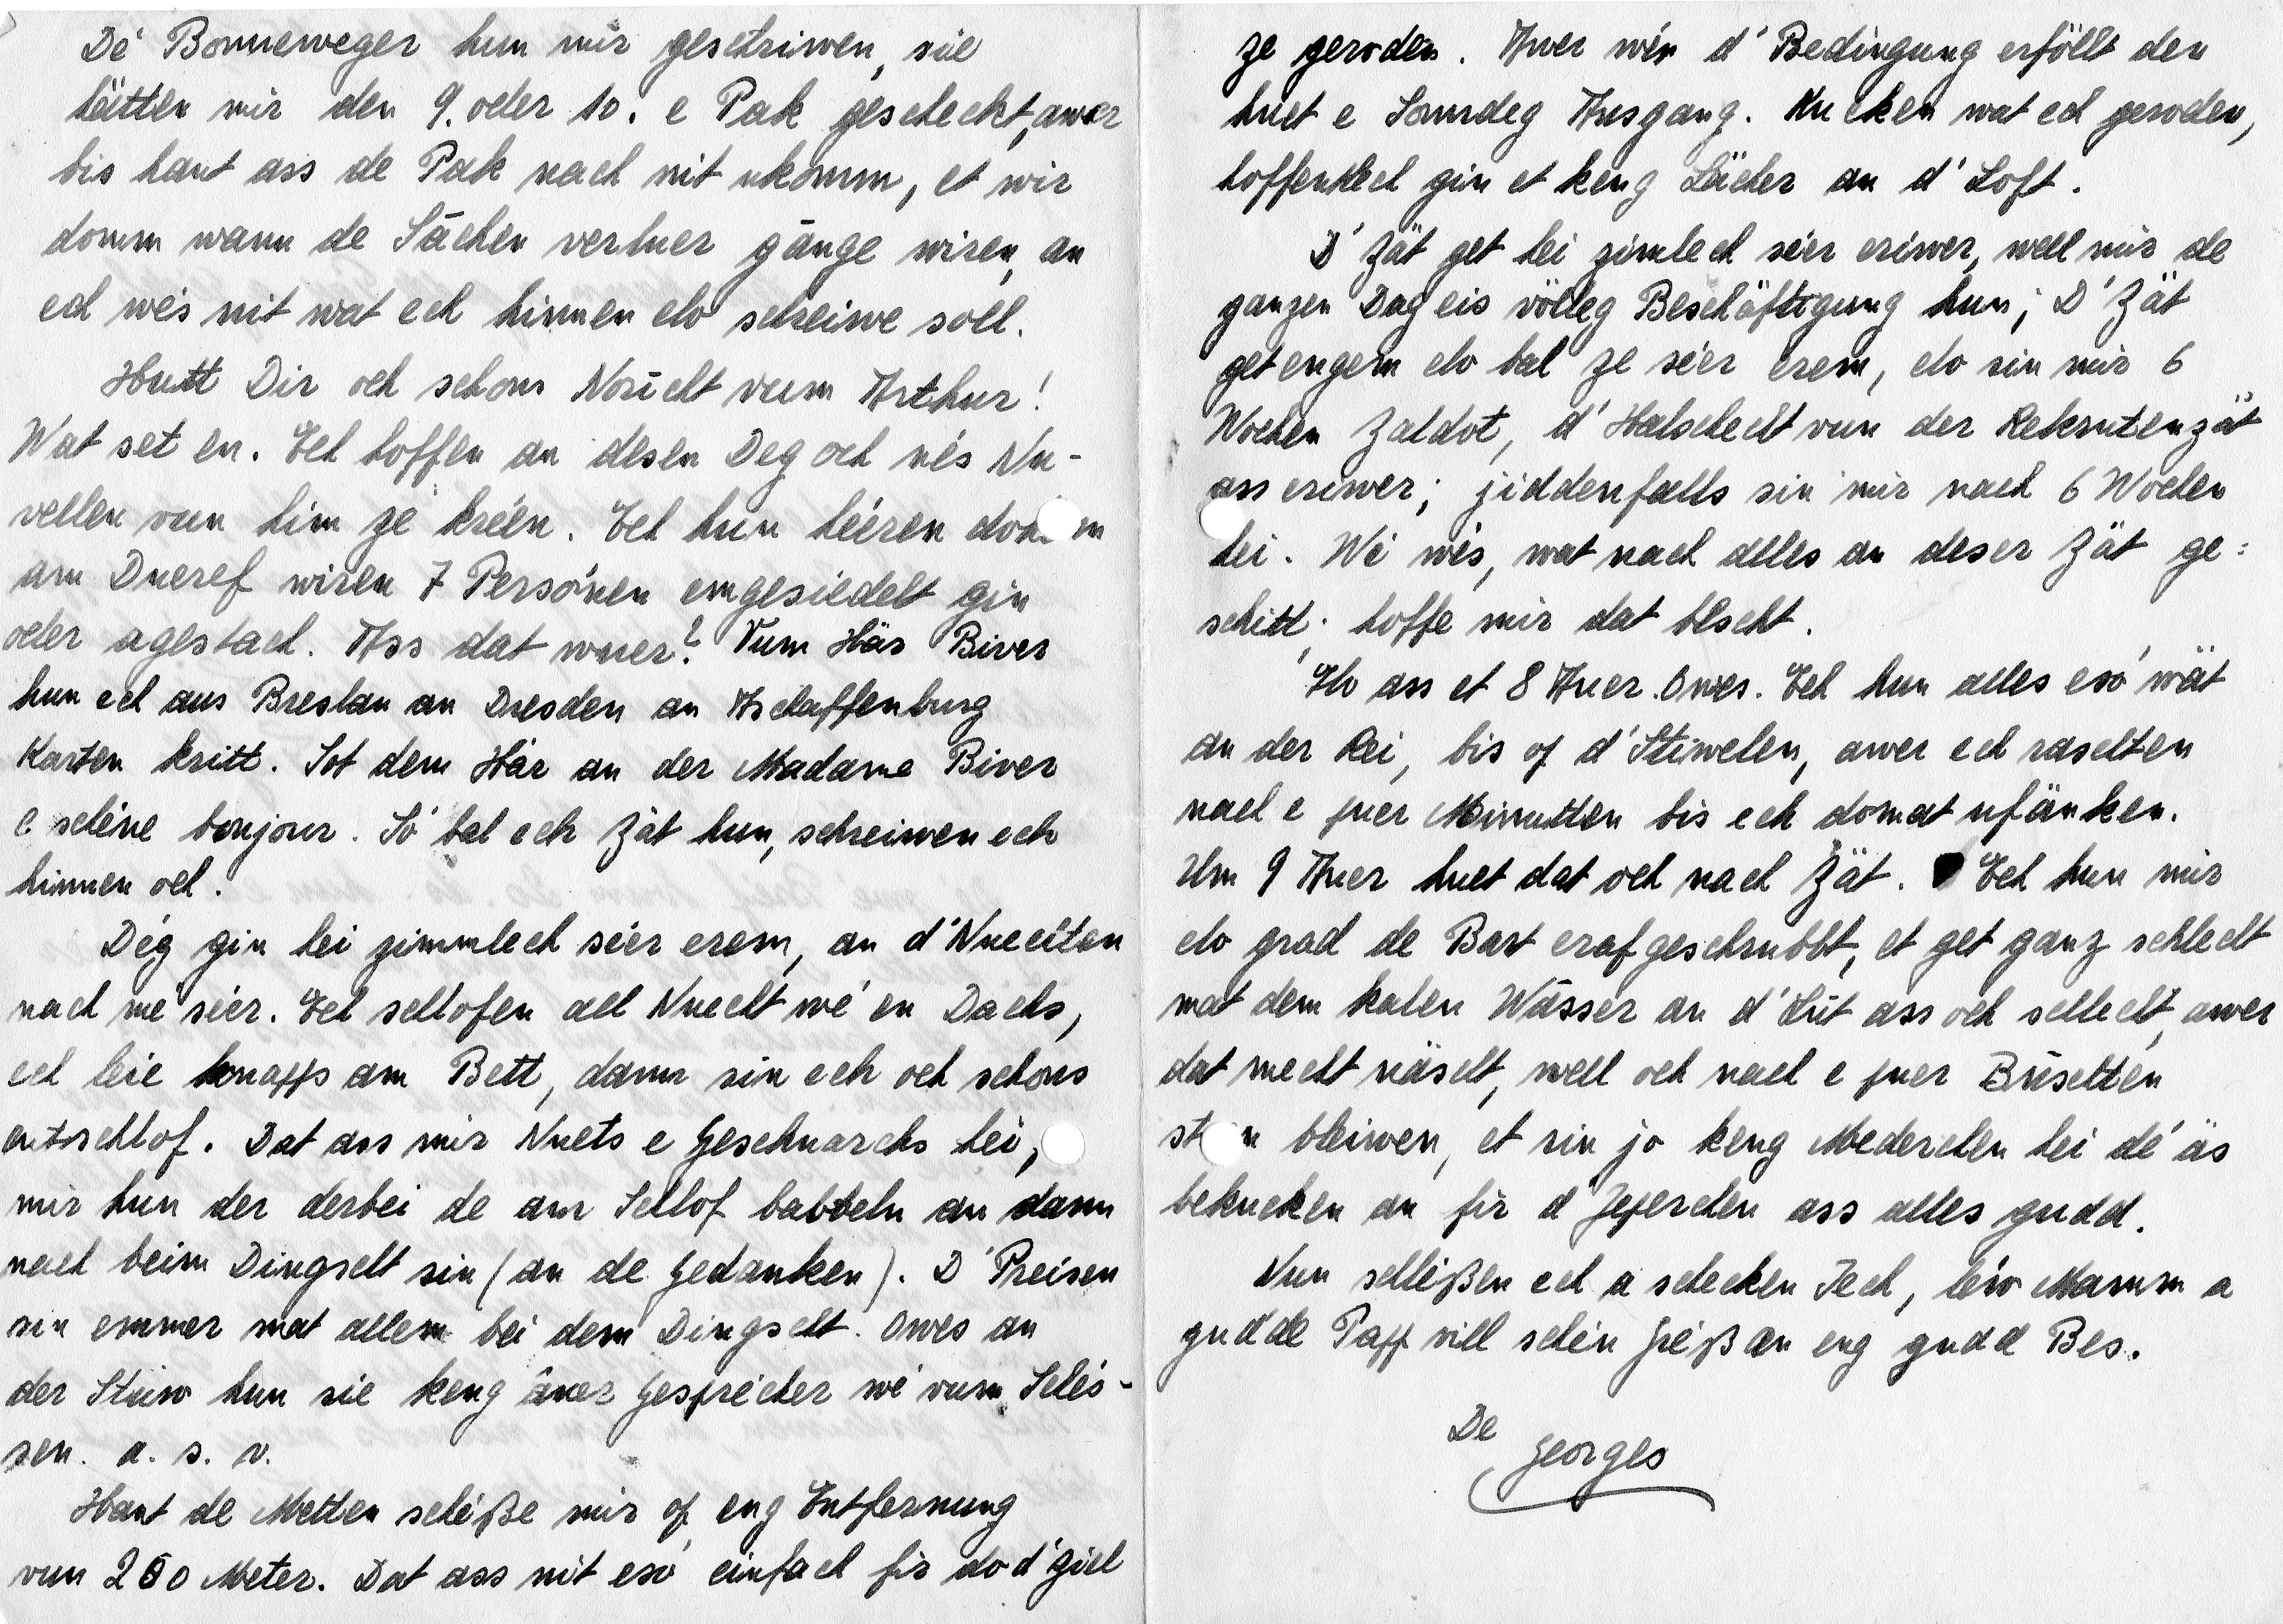 Dé Bonneweger hun mir geschriwen, sie
hätten mir den 9. oder 10. e Pak gescheckt, awer
bis haut ass de Pak nach nit ukomm, et wir
domm wann de Sächen verluer gänge wiren, an
ech wés nit wat ech hinnen elo schreiwe soll.
Hutt Dir och schons Noricht vum Arthur!
Wat set en. Ech hoffen an desen Deg och nés Nu-
vellen vun him ze kréen. Ech hun héieren
am Dueref wiren 7 Persónen emgesiedelt gin
oder agestach. Ass dat wuer? Vum Här Biver
hun ech aus Breslau an Dresden an Aschaffenburg
Karten kritt. Sot dem Här an der Madame Biver
e schéne bonjour. Só bal ech Zät hun, schreiwen ech
hinnen och.
Dég gin hei zimmlech séier erem, an d'Nuechten
nach mé séier. Ech schlofen all Nuecht wé en Dachs,
ech leie knapps am Bett, dann sin ech och schons
entschlof. Dat ass mir Nuets e Geschnarchs hei,
mir hun der derbei de am Schlof babbeln an dann
nach beim Dingscht sin (an de Gedanken). D'Preisen
sin emmer mat allem bei dem Dingscht. Owes an
der Stuw hun sie keng äner Gespréicher wé vum Schés-
sen. a. s. v.
Haut de Metten schéße mir of eng Entfernung
vun 200 Meter. Dat ass nit esó einfach fir do d'Ziel
ze geroden. Awer wén d'Bedingung erföllt den
huet e Sonndeg Ausgang. Kucken wat ech geroden,
hoffentlech gin et keng Lächer an d'Loft.
D'Zät get hei zimlech séier eriwer, well mir de
ganzen Dag eis völleg Beschäftigung hun; D'Zät
get engem elo bal ze séier erem, elo sin mir 6
Wochen Zaldot, d'Halschecht vun der Rekrutenzät
ass eriwer; jiddenfalls sin mir nach 6 Wochen
hei. Wé wés, wat nach alles an deser Zät ge:
schitt; hoffe mir dat bescht.
Elo ass et 8 Auer Owes. Ech hun alles esó wät
an der Rei, bis of d'Stiwelen, awer ech raschten
nach e puer Minutten bis ech domat ufänken.
Um 9 Auer huet dat och nach Zät. Ech hun mir
elo grad de Bart erafgeschrubbt, et get ganz schlecht
mat dem kalen Wässer an d'Hut ass och schlecht, awer
dat mecht näischt, well och nach e puer Büschten
ston bleiwen, et sin jo keng Mederchen hei dé äs
bekucken an fir d'Jeferchen ass alles gudd.
Nun schléßen ech a schecken Iech, léiw Mamm a
gudde Papp vill schén Gréß an eng gudd Bes.
De
Georges